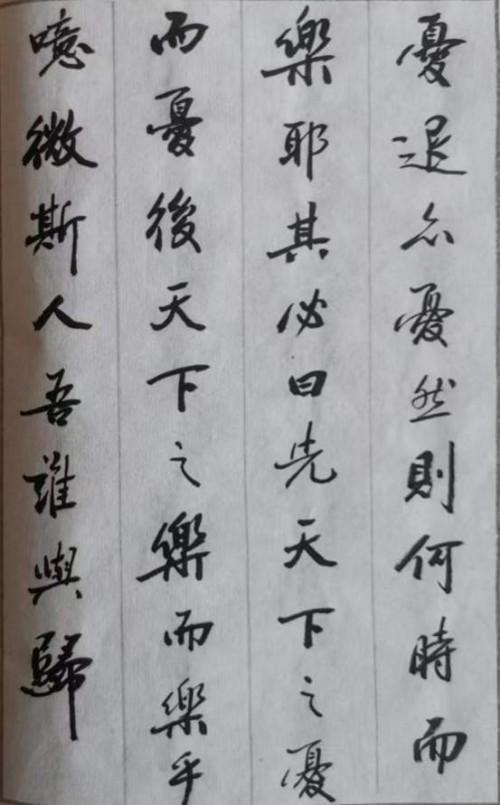 憂退亦憂然則何時而
樂耶其必曰先天下之憂
而憂後天下之樂而樂乎
噫微斯人吾誰與歸